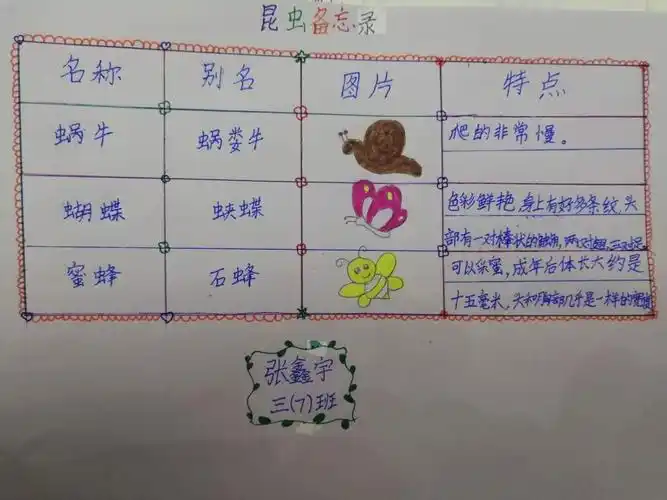 昆虫备忘录
名称 别名 图片 特点
蜗牛 蜗娄牛 爬的非常慢。
蝴蝶 蛱蝶 色彩鲜艳,身上有好多条纹,头
部有一对棒状的触角,两对翅,三对足。
蜜蜂 石蜂 可以采蜜,成年后体长大约是
十五毫米,头和胸部几乎是一样的宽度
张鑫宇
三(7)班